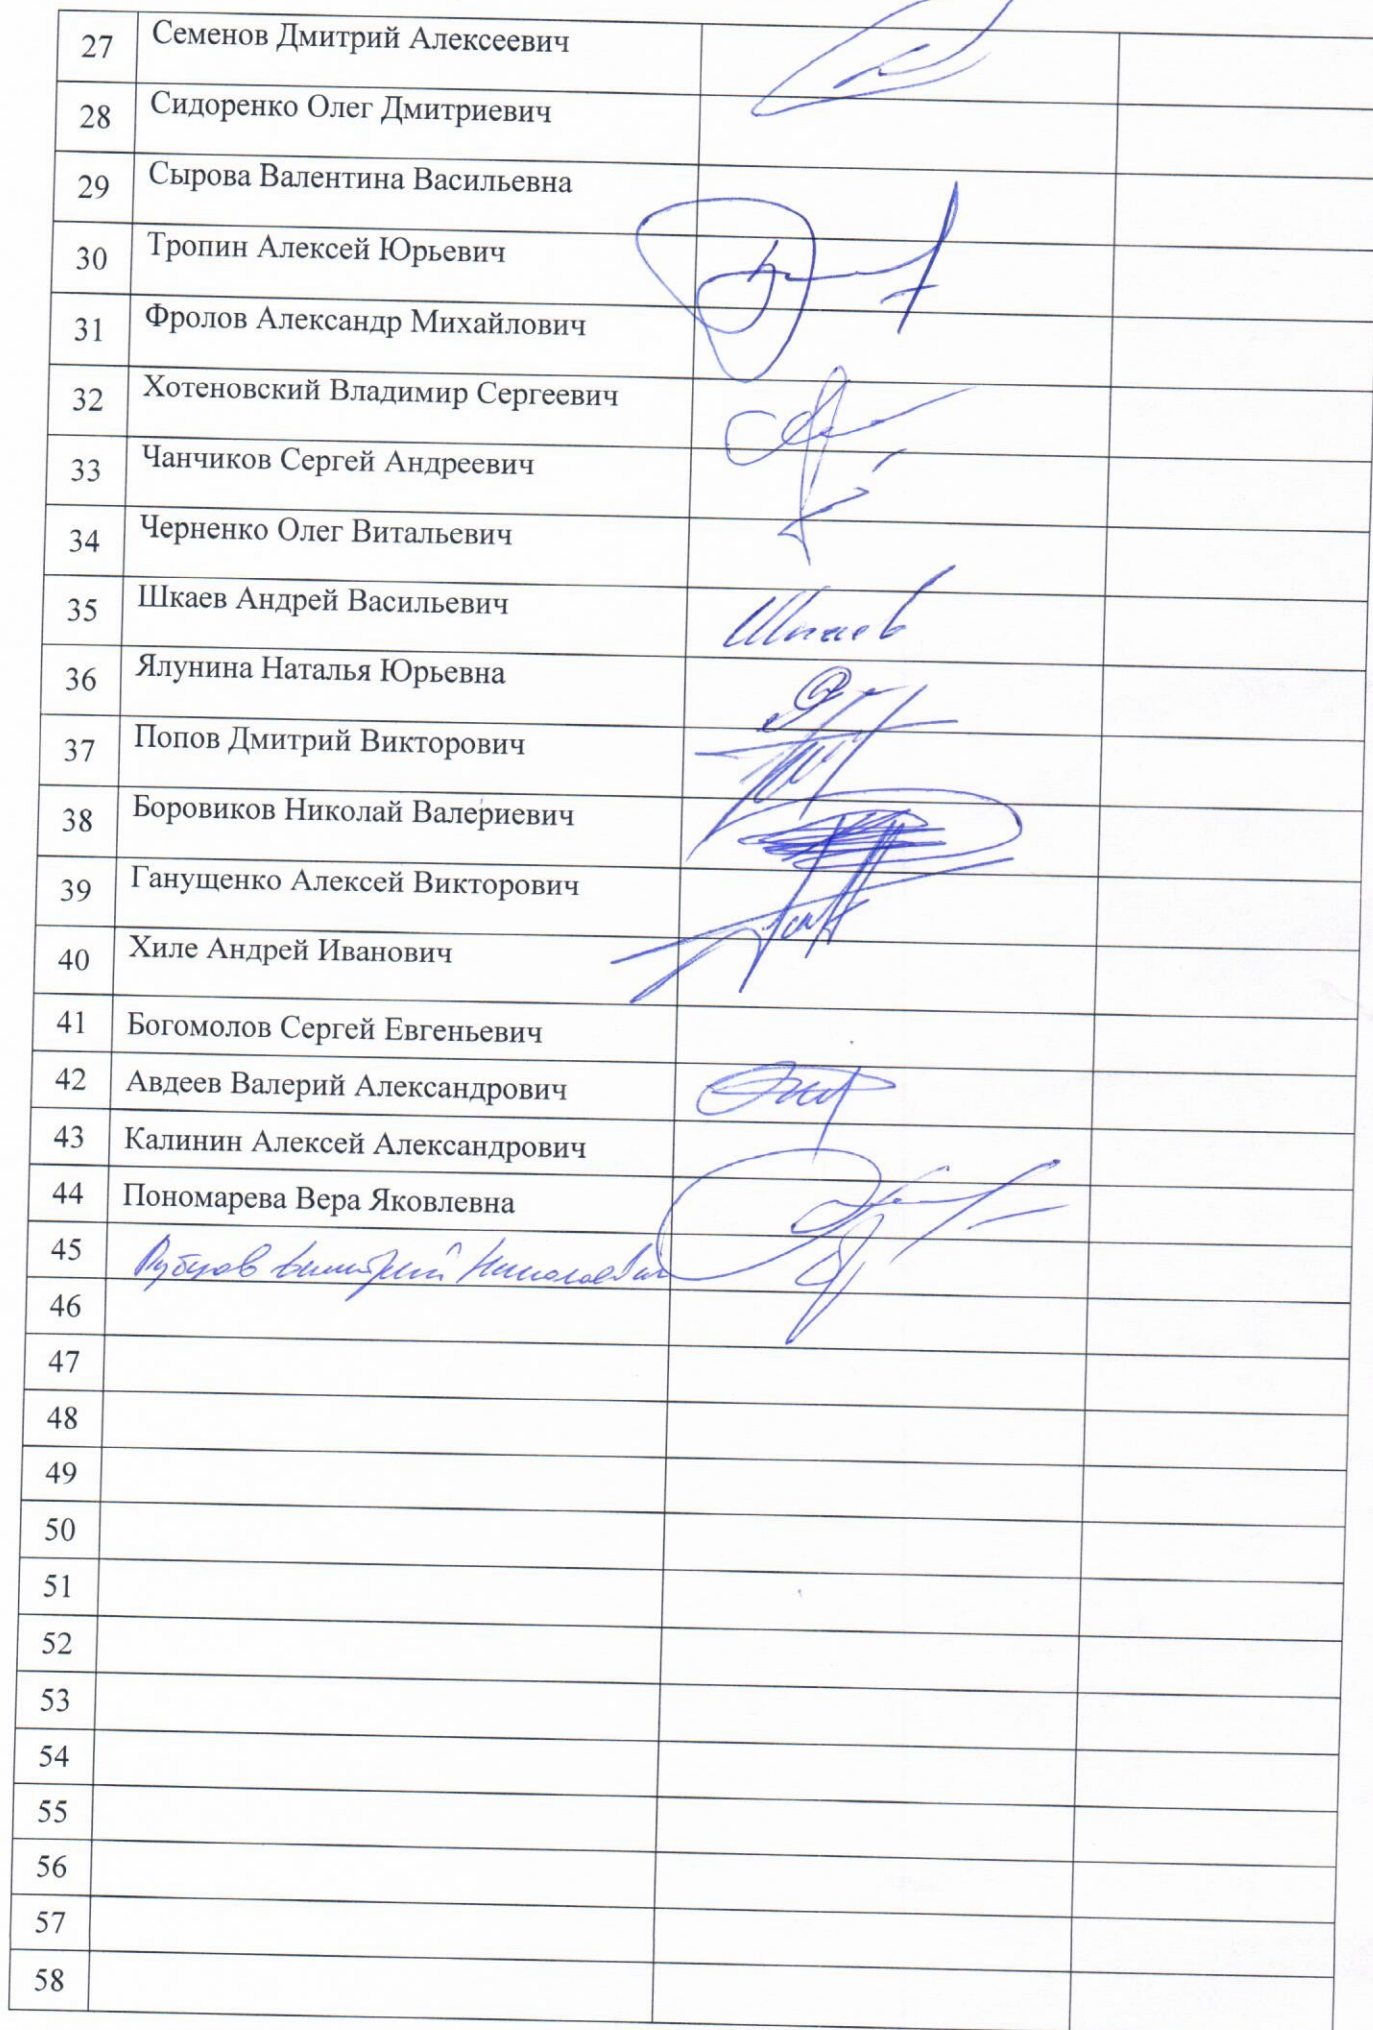 27 Семенов Дмитрий Алексеевич
28 Сидоренко Олег Дмитриевич
29 Сырова Валентина Васильевна
30 Тропин Алексей Юрьевич
31 Фролов Александр Михайлович
32 Хотеновский Владимир Сергеевич
33 Чанчиков Сергей Андреевич
34 Черненко Олег Витальевич
35 Шкаев Андрей Васильевич Шкаев
36 Ялунина Наталья Юрьевна
37 Попов Дмитрий Викторович
38 Боровиков Николай Валериевич
39 Ганущенко Алексей Викторович
40 Хиле Андрей Иванович
41 Богомолов Сергей Евгеньевич
42 Авдеев Валерий Александрович
43 Калинин Алексей Александрович
44 Пономарева Вера Яковлевна
45 Рубцов Дмитрий Николаевич
46
47
48
49
50
51
52
53
54
55
56
57
58